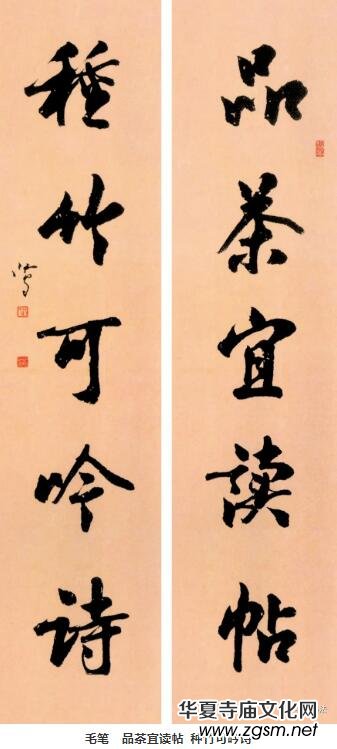 品茶宜讀帖
種竹可吟诗
法
华夏寺庙文化网
www.zgsm.net
毛笔 品茶宜读帖 种竹可吟诗